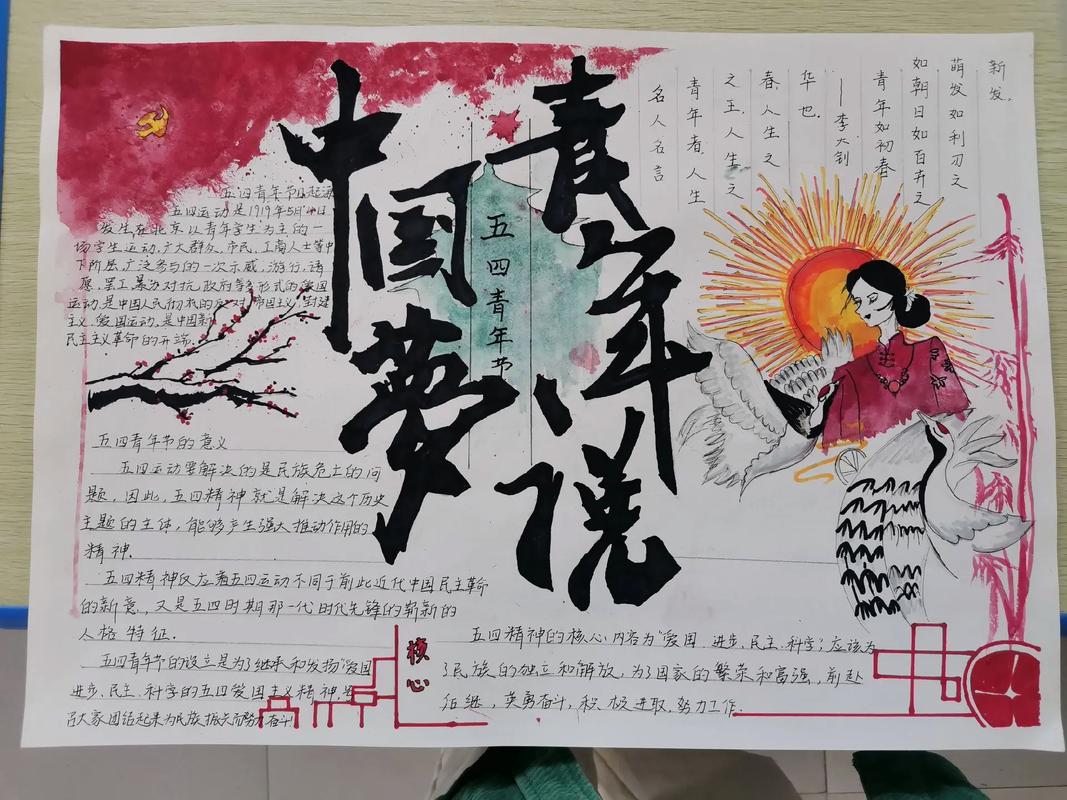 中国梦
青年说
五四青年节
五四青年节的起源
五四运动是1919年5月4日
发生在北京以青年学生为主的一
场学生运动,广大群众、市民、工商人士等中
下阶层,广泛参与的一次示威,游行,请
愿,罢工,暴力对抗政府等多形式的爱国
运动,是中国人民彻底的反对帝国主义,封建
主义,爱国运动,是中国新
民主主义革命的开端.
五四青年节的意义
五四运动要解决的是民族危亡的问
题,因此,五四精神就是解决这个历史
主题的主体,能够产生强大推动作用的
精神.
五四精神反应着五四运动不同于前此近代中国民主革命
的新意,又是五四时期那一代时代先锋的崭新的
人格特征.
五四青年节的设立是为了继承和发扬"爱国
进步、民主、科学的五四爱国主义精神,号
召大家团结起来为民族振兴而努力奋斗!
核心
五四精神的核心内容为"爱国、进步、民主、科学",应该为
了民族的独立和解放,为了国家的繁荣和富强,前赴
后继,英勇奋斗,积极进取,努力工作.
名人名言
青年者,人生
之王,人生之
春,人生之
华也.
——李大钊
青年如初春
如朝日如百卉之
萌发如利刃之
新发,